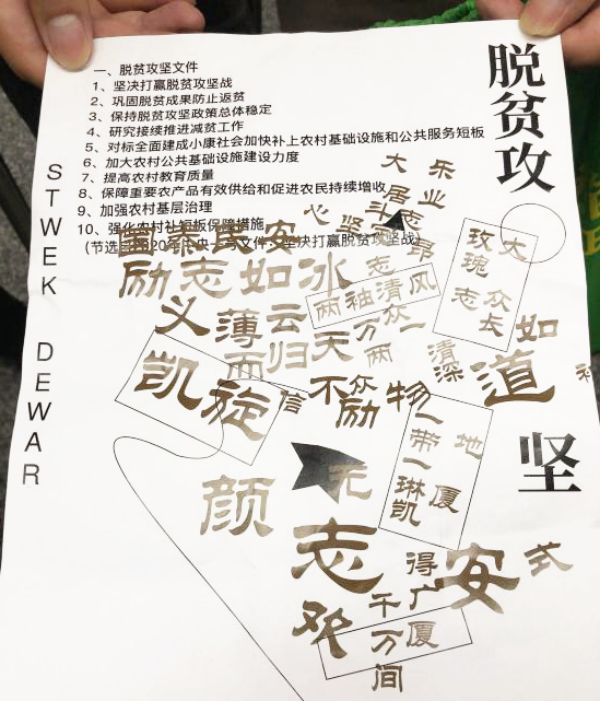 脱贫攻
坚
一、脱贫攻坚文件
1、坚决打赢脱贫攻坚战
2、巩固脱贫成果防止返贫
3、保持脱贫攻坚政策总体稳定
4、研究接续推进减贫工作
5、对标全面建成小康社会加快补上农村基础设施和公共服务短板
6、加大农村公共基础设施建设力度
7、提高农村教育质量
8、保障重要农产品有效供给和促进农民持续增收
9、加强农村基层治理
10、强化农村补短板保障措施
STWEK DEWAR
大 乐
居 业
斗 志
心 坚 昂
安
励志如冰
志
两袖清风
玫瑰
志
大
众
长
义薄云天
众
万 一
两
而归
不
众
励
物
清
深
如
道
凯旋
信
一带一
琳
凯
地
厦
颜
无
志
欢
得
广
厦
千
万
间
安
式